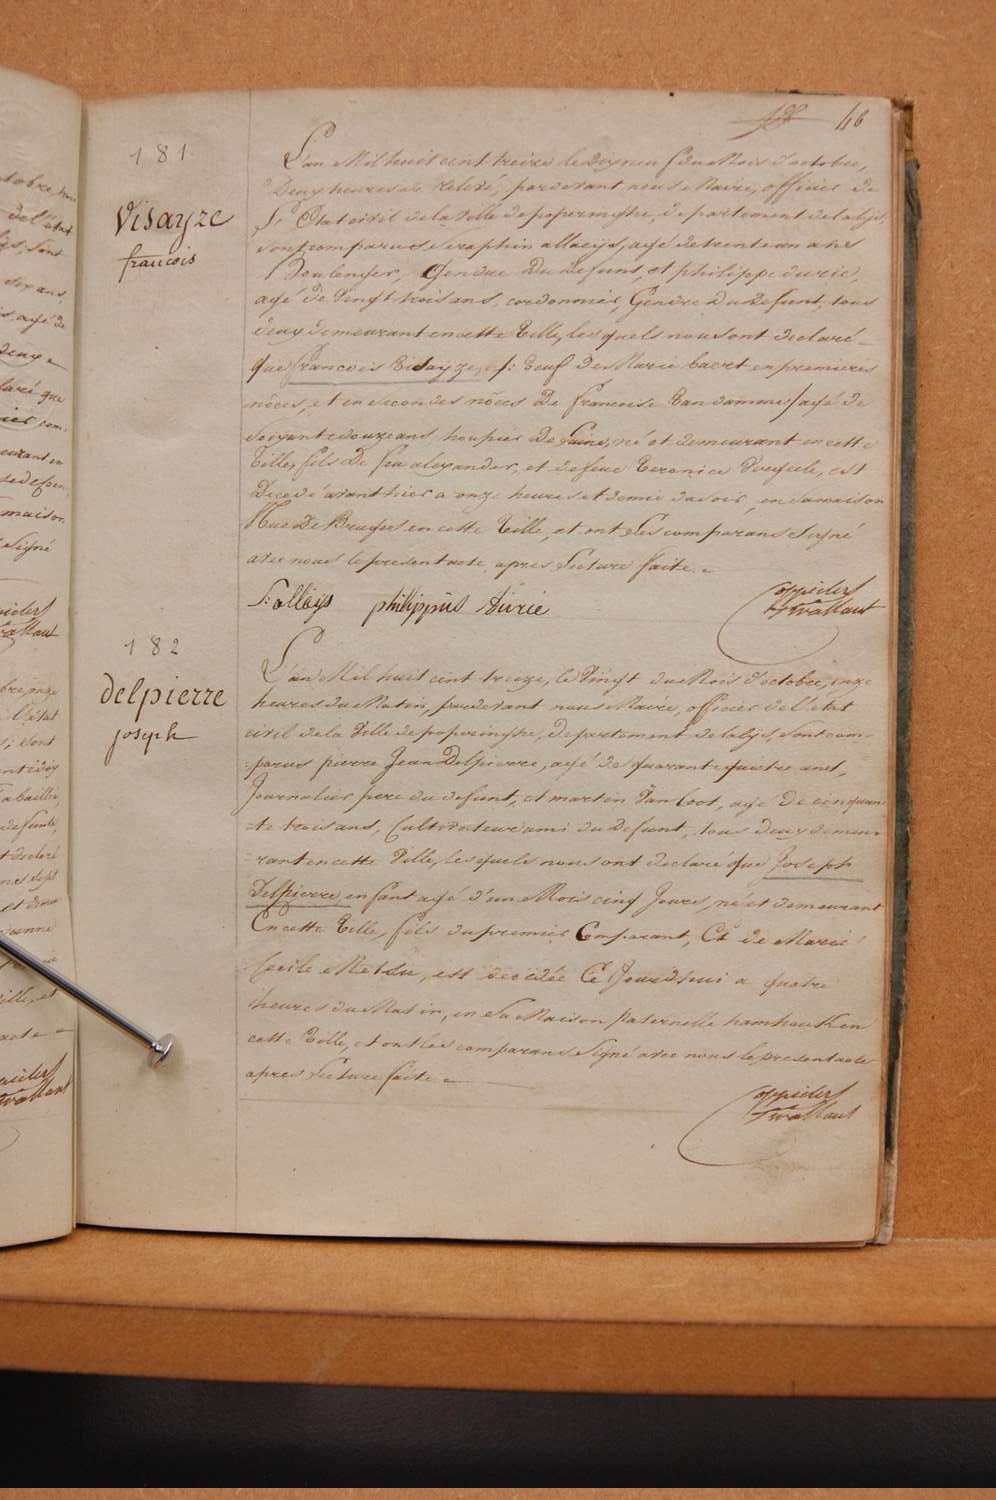 46
181
Visayze
francois
L'an Mil huit cent treize le dix neuf du Mois d'octobre,
Deux heures de relevé, pardevant nous Maire, officier de
L'Etat civil de la Ville de poperinghe, departement de la lys,
sont comparus Seraphin alleweys, agé de trente un ans
Boulenger, Gendre Du defunt, et philippe durie,
agé de Vingt trois ans, cordonnier, Gendre Du defunt, tous
deux demeurant en cette Ville, lesquels nous ont declaré
que francois Visayze, Veuf De Marie baert en premieres
nôces, et en secondes nôces De francoise Vandamme / agé de
Soixante douze ans, houpier De Laine, né et demeurant en cette
Ville, fils De feu alexander, et de feue Veronica, est
Decedé avant hier a onze heures et demie du soir, en sa maison
Rue De Bruges en cette Ville, et ont Les comparans Signé
avec nous le present acte apres Lecture faite.
S: alleijs philippus durie
182
Delpierre
joseph
L'an Mil huit cent treize, le Vingt du Mois d'octobre, onze
heures du Matin, pardevant nous Maire, officier de l'etat
civil de la Ville de poperinghe, Departement de la lys, sont com-
-parus pierre Jean Delpierre, agé de quarante quatre ans,
Journalier pere du defunt, et martin Van Loot, agé De cinquan
-te trois ans, Cultivateur ami du Defunt, tous deux demeu-
-rant en cette Ville, lesquels nous ont declaré que Joseph
Delpierre, enfant agé d'un Mois cinq Jours, né et demeurant
En cette Ville, fils du premier Comparant, Et de Marie
Cecile, est decedée Ce Jourdhui a quatre
heures du Matin, en Sa Maison paternelle hamhouk en
cette Ville, et ont les comparans Signé avec nous le present acte
apres Lecture faite